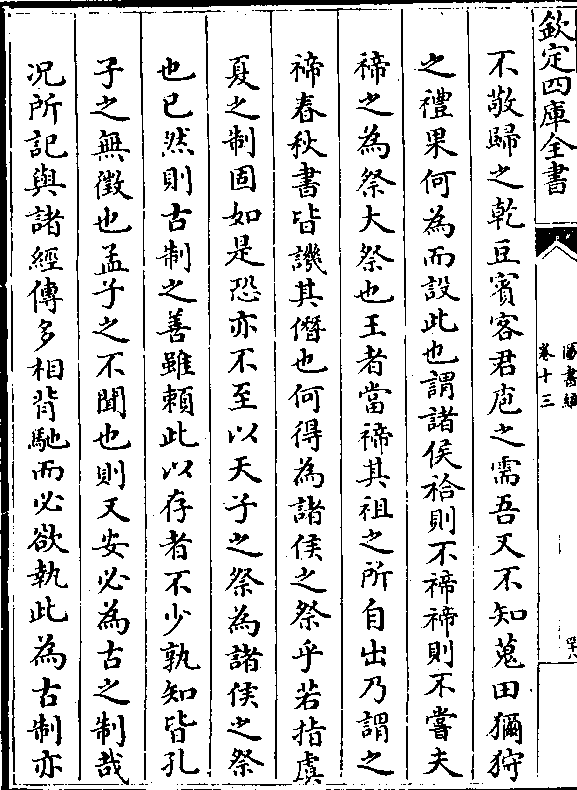 欽定四庫全書
圖書編
卷十三
不敬歸之乾豆賓客君庖之需吾又不知蒐田獮狩
之禮果何為而設此也謂諸侯祫則不禘禘則不嘗夫
禘之為祭大祭也王者當禘其祖之所自出乃謂之
禘春秋書皆譏其僭也何得為諸侯之祭乎若指虞
夏之制固如是恐亦不至以天子之祭為諸侯之祭
也已然則古制之善雖賴此以存者不少孰知皆孔
子之無徵也孟子之不聞也則又安必為古之制哉
况所記與諸經傳多相背馳而必欲執此為古制亦